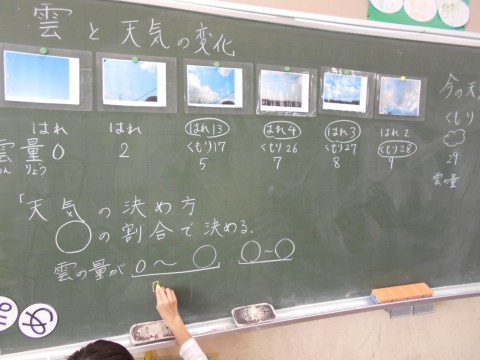 雲と天気の変化
はれ はれ はれ13 はれ4 はれ3 はれ2
くもり17 くもり26 くもり27 くもり28
雲量 0 2 5 7 8 9
りょう
今の天
くもり
29
雲の量
「天気の決め方
◯の割合で決める.
雲の量が 0〜◯ ◯〜◯